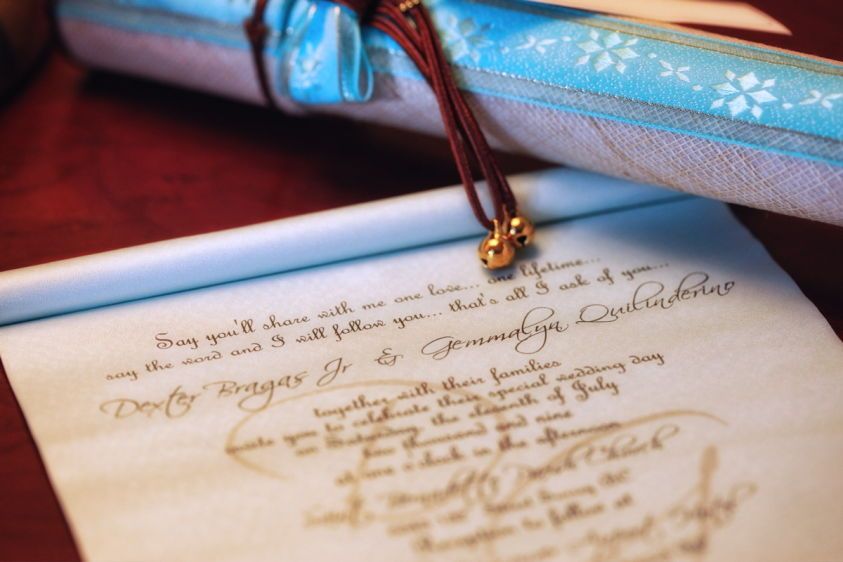 Say you'll share with me one love... one lifetime...
say the word and I will follow you... that's all I ask of you...
Dexter Bragas Jr & Gemmalyn Quilinderino
together with their families
invite you to celebrate their special wedding day
on Saturday, the eleventh of July
two thousand and nine
at one o'clock in the afternoon
Church
Reception to follow at